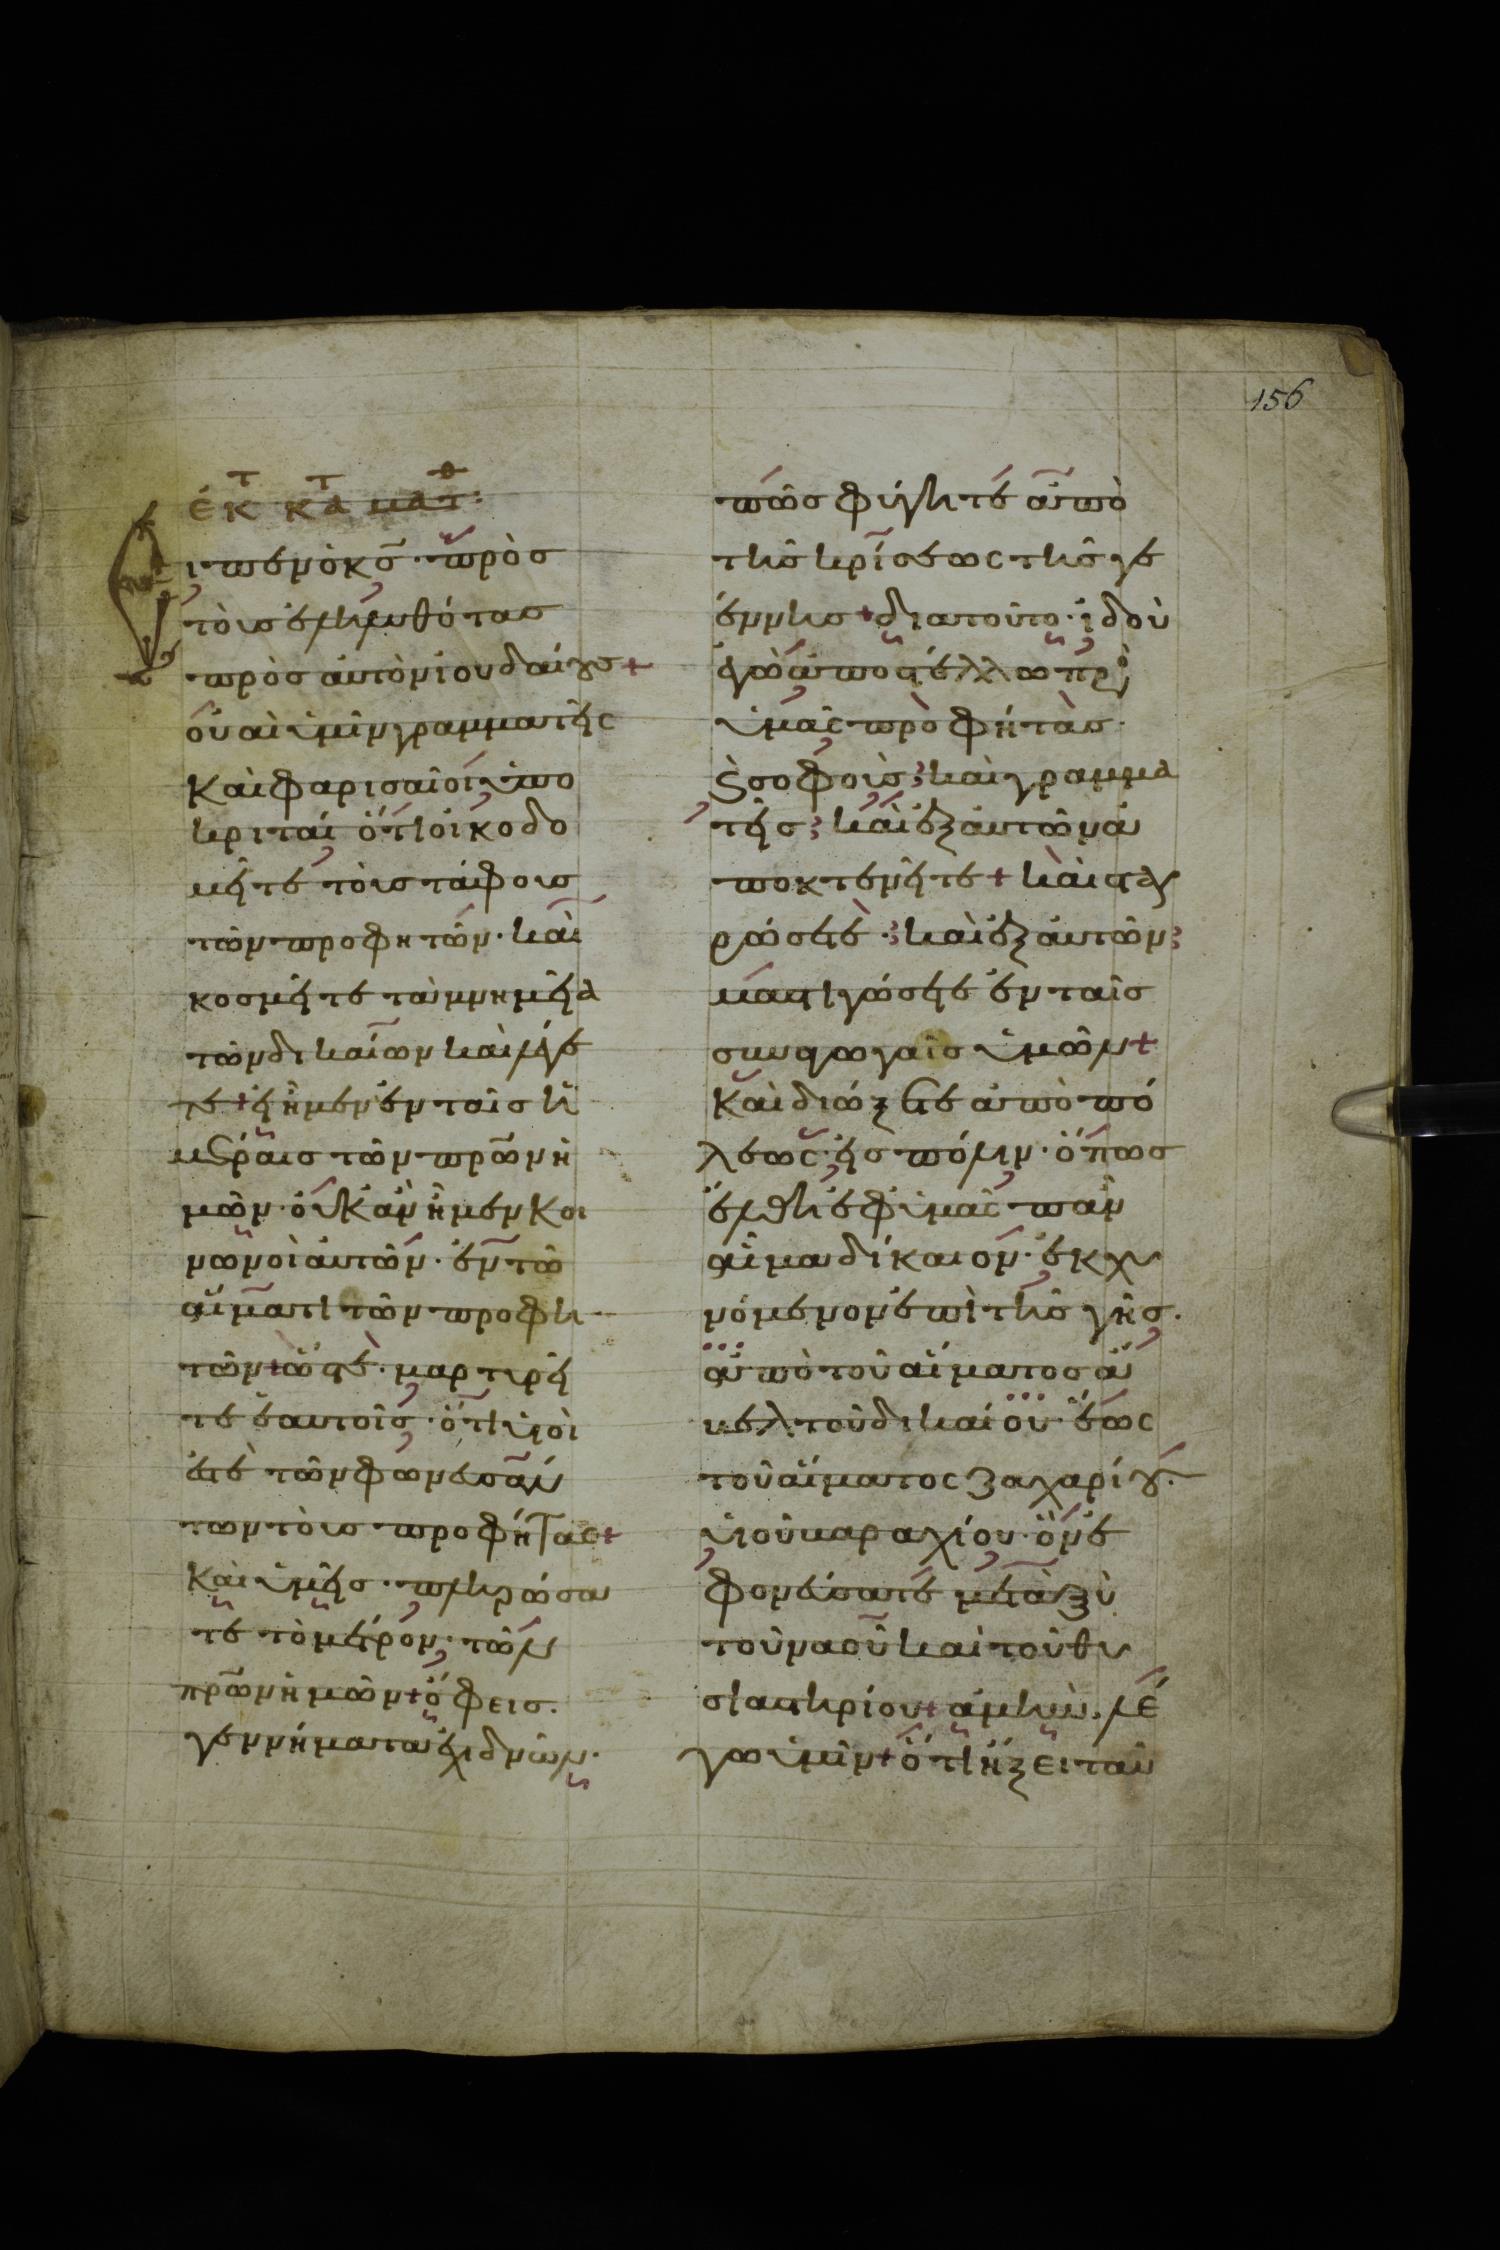 156
ἐκ τ κατ ματθ:
Εἶπεν ὁ κς̄· πρὸσ
τοὺσ ἐληλυθότασ
πρὸσ αὐτὸν ἰουδαίουσ +
οὐαὶ ὑμῖν γραμματῆς
Καὶ φαρισαῖοι ὑπο
κριταί ὅτι οἰκοδο
μεῖτε τοὺσ τάφουσ
τῶν προφητῶν· καὶ
κοσμεῖτε τὰ μνημεῖα
τῶν δικαίων καὶ λέγε
τε + εἰ ἦμεν ἐν ταῖσ ἡ
μέραισ τῶν πρων ἡ
μῶν· οὐκ ἂν ἦμεν κοι
νωνοὶ αὐτῶν· ἐν τῶ
αἵματι τῶν προφη
τῶν + ὥστε· μαρτυρεῖ
τε ἑαυτοῖς· ὅτι υἱοὶ
ἐστὲ τῶν φωνευσάν
των τοὺσ προφήτας +
Καὶ ὑμεῖσ· πληρώσα
τε τὸ μέτρον· τῶν
πρων ἡμῶν + ὄφεισ.
γεννήματα ἐχιδνῶν·
πῶσ φύγητε ἀπὸ
τῆσ κρίσεως τῆσ γε
έννησ + διατοῦτο· ἰδοὺ
ἐγὼ ἀποστέλλω πρὸ
ὑμᾶς προφήτασ·
Καὶ σοφοὺσ; καὶ γραμμα
τεῖσ; καὶ ἐξ αὐτῶν ἀ
ποκτενεῖτε + καὶ σταυ
ρώσετε·; καὶ ἐξ αὐτῶν;
μαστιγώσετε ἐν ταῖσ
συναγωγαῖσ ὑμῶν +
Καὶ διώξετε ἀπὸ πό
λεως· εἰσ πόλιν· ὅπωσ
ἔλθη ἐφ ὑμᾶς πᾶν
αἷμα δίκαιον· ἐκχυ
νόμενον ἐπὶ τῆσ γῆσ.
ἀπὸ τοῦ αἵματοσ ἄ
βελ τοῦ δικαίου· ἕως
τοῦ αἵματος ζαχαρίου·
υἱοῦ βαραχίου· ὃν ἐ
φονεύσατε μεταξὺ
τοῦ ναοῦ καὶ τοῦ θυ
σιαστηρίου + ἀμὴν. λέ
γω ὑμῖν + ὅτι ἥξει ταῦ